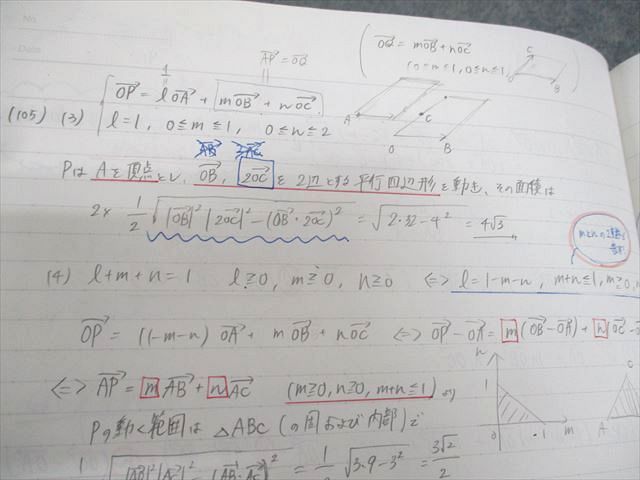 No.
Date
AP = OQ
(OQ = mOB + nOC
(0≤m≤1, 0≤n≤1)
C
O
B
1
(105) (3) { OP = lOA + mOB + nOC
l=1, 0≤m≤1, 0≤n≤2
A
C
O
B
AB 2AC
PはAを頂点とし、OB, 2OCを2辺とする平行四辺形を動き、その面積は
2× 1/2 √|OB|²|2OC|²-(OB・2OC)² = √2・32-4² = 4√3
(4) l+m+n=1 l≥0, m≥0, n≥0 ⇔ l=1-m-n, m+n≤1, m≥0,
OP = (1-m-n) OA + mOB + nOC ⇔ OP-OA = m(OB-OA) + n(OC-O
⇔ AP = mAB + nAC (m≥0, n≥0, m+n≤1) より
n
1
0
1
m
C
A
Pの動く範囲は △ABC (の周および内部)で
1 √|AB|²|AC|²-(AB・AC)² = 1/2 √3・9-3² = 3√2/2